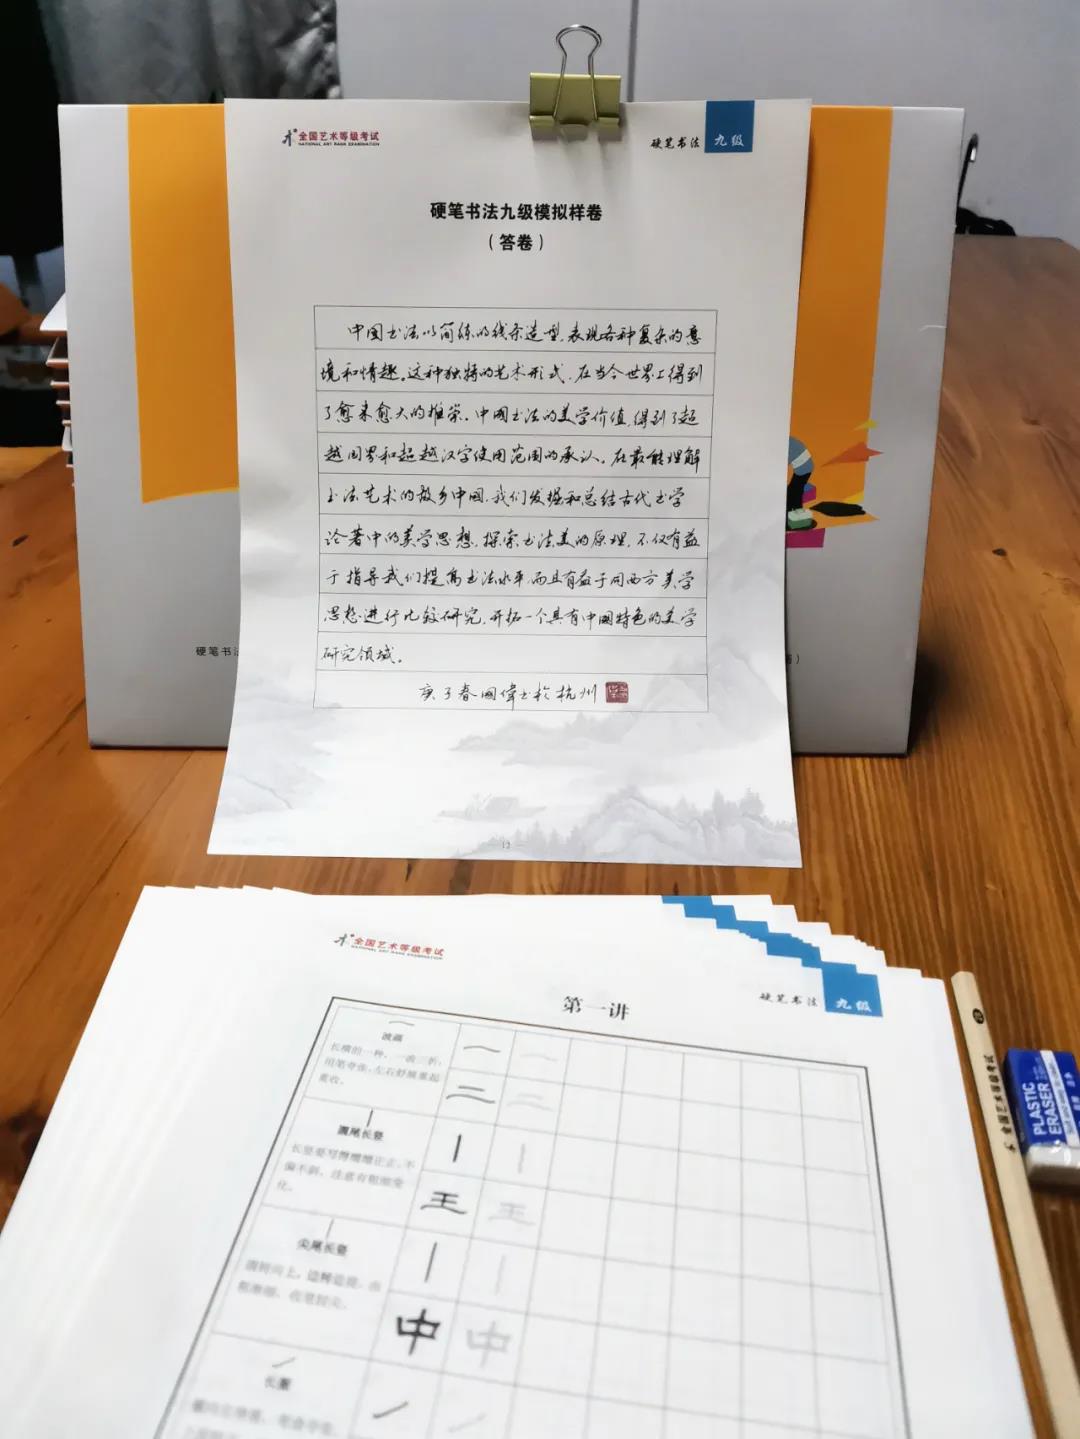 全国艺术等级考试
NATIONAL ART RANK EXAMINATION
硬笔书法 九级
硬笔书法九级模拟样卷
（答卷）
中国书法以简练的线条造型，表现各种复杂的意
境和情趣。这种独特的艺术形式，在当今世界上得到
了愈来愈大的推崇。中国书法的美学价值，得到了超
越国界和超越汉字使用范围的承认。在最能理解
书法艺术的故乡中国，我们发掘和总结古代书学
论著中的美学思想，探索书法美的原理，不仅有益
于指导我们提高书法水平，而且有益于同西方美学
思想进行比较研究，开拓一个具有中国特色的美学
研究领域。
庚子春国伟书于杭州
12
硬笔书
全国艺术等级考试
NATIONAL ART RANK EXAMINATION
硬笔书法 九级
第一讲
波画
长横的一种，一波三折，
用笔夸张，左右舒展重起
重收。
一 一
二 二
圆尾长竖
长竖要写得端端正正，不
偏不斜，注意有粗细变
化。
王 王
尖尾长竖
中 中
长撇
全国艺术等级考试
PLASTIC
ERASER